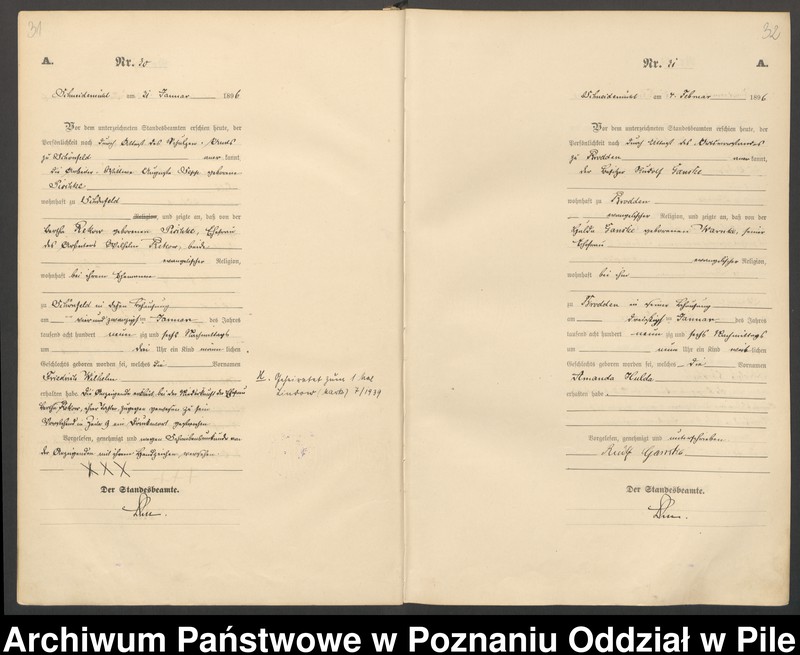 31
A.
Nr. 20
Schneidemühl am 31 Januar 1896
Vor dem unterzeichneten Standesbeamten erschien heute, der
Persönlichkeit nach durch Attest des Schulzen-Amts
zu Schönfeld kannt,
die Arbeiter-Wittwe Auguste geborene
wohnhaft zu Schönfeld
Religion, und zeigte an, daß von der
Bertha Rekow geborenen Ehefrau
des Arbeiters Wilhelm Rekow, beide
evangelischer Religion,
wohnhaft bei ihrem Ehemanne
zu Schönfeld in dessen Behausung
am vier und zwanzigsten Januar des Jahres
tausend acht hundert neunzig und sechs Nachmittags
um drei Uhr ein Kind männlichen
Geschlechts geboren worden sei, welches die Vornamen
Friedrich Wilhelm
erhalten habe. Die Anzeigende erklärt bei der Niederkunft der Ehefrau
Bertha Rekow, zugegen gewesen zu sein
Vorstehend in Zeile 9 ein Druckwort gestrichen
Vorgelesen, genehmigt und wegen Schreibensunkunde von
der Anzeigenden mit ihrem Handzeichen versehen
XXX
Der Standesbeamte.
Geheiratet zum 1 Mal
7/1939
32
Nr. 21
A.
Schneidemühl am 4. Februar 1896
Vor dem unterzeichneten Standesbeamten erschien heute, der
Persönlichkeit nach durch Attest des Ortsvorstandes
zu Brodden kannt,
der Besitzer Rudolf Ganske
wohnhaft zu Brodden
evangelischer Religion, und zeigte an, daß von der
Hulda Ganske geborenen Warnke, seiner
Ehefrau
evangelischer Religion,
wohnhaft bei ihm
zu Brodden in seiner Behausung
am dreißigsten Januar des Jahres
tausend acht hundert neunzig und sechs Nachmittags
um neun Uhr ein Kind weiblichen
Geschlechts geboren worden sei, welches die Vornamen
Amanda Hulda
erhalten habe
Vorgelesen, genehmigt und unterschrieben
Rudolf Ganske
Der Standesbeamte.
Archiwum Państwowe w Poznaniu Oddział w Pile